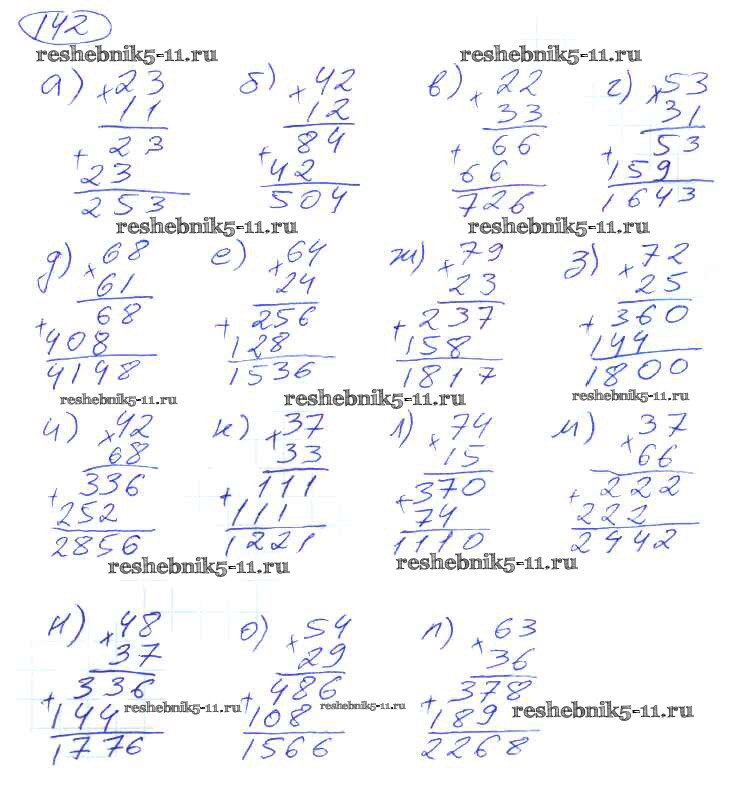 142
reshebnik5-11.ru
а) × 23 б) × 42 в) × 22 г) × 53
11 12 33 31
+ 23 + 84 + 66 + 53
23 42 66 159
253 504 726 1643
reshebnik5-11.ru reshebnik5-11.ru
д) × 68 е) × 64 ж) × 79 з) × 72
61 24 23 25
+ 68 + 256 + 237 + 360
408 128 158 144
4148 1536 1817 1800
reshebnik5-11.ru reshebnik5-11.ru reshebnik5-11.ru
и) × 42 к) × 37 л) × 74 м) × 37
68 33 15 66
+ 336 + 111 + 370 + 222
252 111 74 222
2856 1221 1110 2442
reshebnik5-11.ru reshebnik5-11.ru
н) × 48 о) × 54 п) × 63
37 29 36
+ 336 + 486 + 378
144 reshebnik5-11.ru 108 reshebnik5-11.ru 189 reshebnik5-11.ru
1776 1566 2268